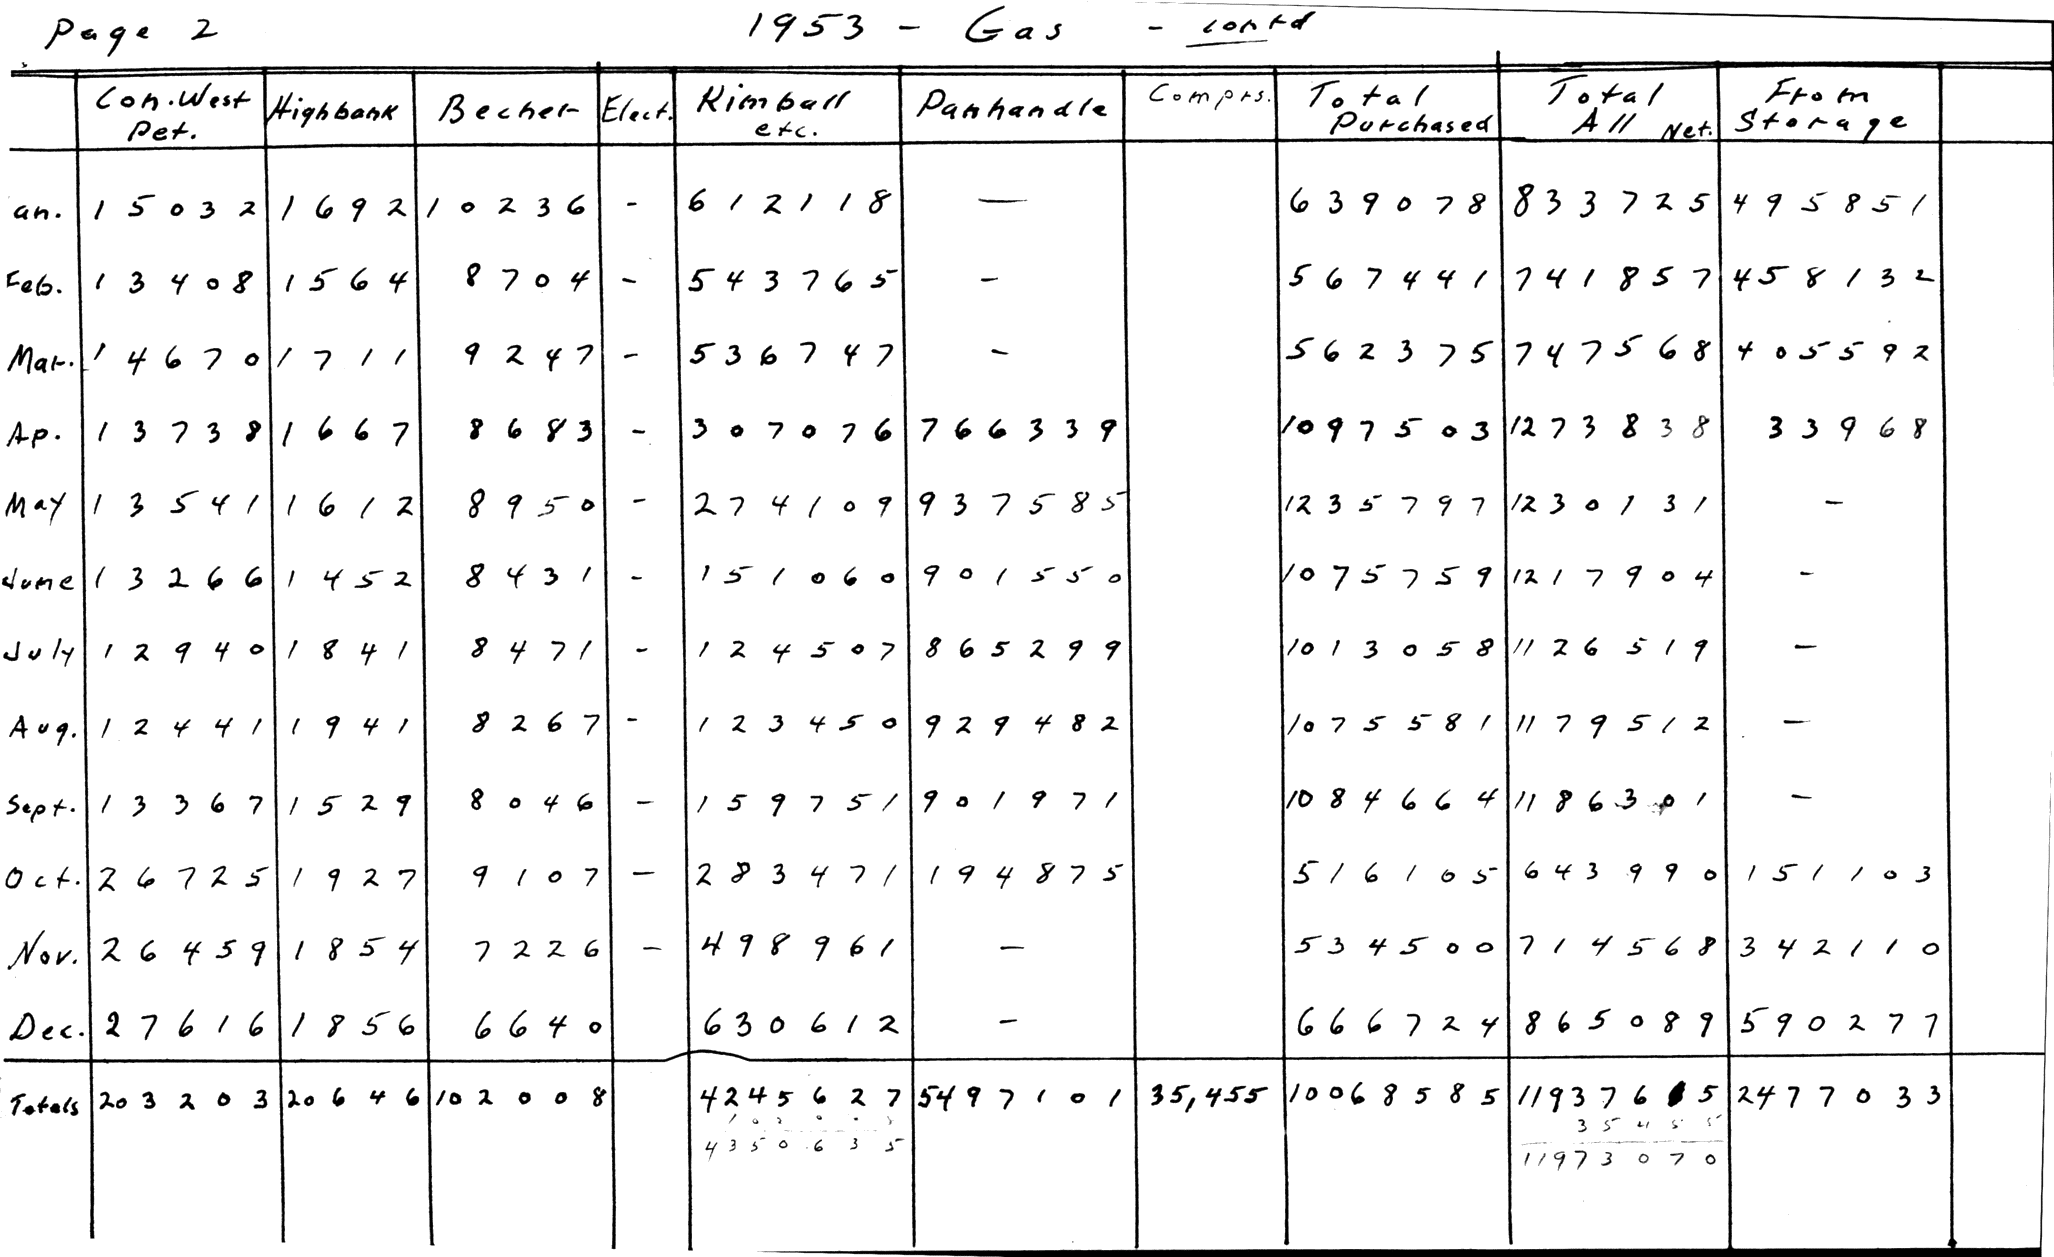 Page 2 1953 - Gas - contd
Con. West Pet. Highbank Becher Elect. Kimball etc. Panhandle Comprs. Total Purchased Total All Net. From Storage
an. 15032 1692 10236 - 612118 — 639078 833725 495851
Feb. 13408 1564 8704 - 543765 - 567441 741857 458132
Mar. 14670 1711 9247 - 536747 - 562375 747568 405592
Ap. 13738 1667 8683 - 307076 766339 1097503 1273838 33968
May 13541 1612 8950 - 274109 937585 1235797 1230131 -
June 13266 1452 8431 - 151060 901550 1075759 1217904 -
July 12940 1841 8471 - 124507 865299 1013058 1126519 -
Aug. 12441 1941 8267 - 123450 929482 1075581 1179512 -
Sept. 13367 1529 8046 - 159751 901971 1084664 1186301 -
Oct. 26725 1927 9107 - 283471 194875 516105 643990 151103
Nov. 26459 1854 7226 - 498961 - 534500 714568 342110
Dec. 27616 1856 6640 630612 - 666724 865089 590277
Totals 203203 20646 102008 4245627 5497101 35,455 10068585 11937615 2477033
35455
4350635 11973070